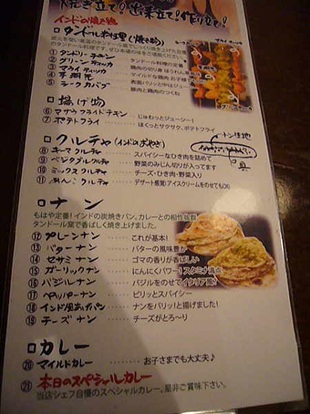 焼き立て!出来立て!作り立て!
インドの焼き物
□タンドール料理
① タンドリーチキン
② グリーン
③ マライティッカ
④ 手羽先
⑤ シークカバブ
□揚げ物
⑥ マサラフライドチキン じゅわっとジューシー!
⑦ ポテトフライ ほくっとサクサク、ポテトフライ
□クルチャ(インドのおやき)
⑧ キーマクルチャ スパイシーなひき肉を詰めて
⑨ ベジタブルクルチャ 野菜のみじん切りが入ってます
⑩ ミックスクルチャ チーズ・ひき肉・野菜入り
⑪ クルチャ デザート感覚!アイスクリームをのせてもOK!
□ナン
もはや定番!インドの炭焼きパン、カレーとの相性抜群
タンドール窯で香ばしく焼き上げました。
⑫ プレーンナン これが基本!
⑬ バターナン バターの風味豊か
⑭ セサミナン ゴマの香りが香ばしい
⑮ ガーリックナン にんにくパワー!スタミナ満点
⑯ バジルナン バジルをのせてイタリア風!
⑰ ペッパーナン ピリッとスパイシー
⑱ インド風あげパン ナンをパリッ!と揚げました!
⑲ チーズナン チーズがとろ〜り
□カレー
⑳ マイルドカレー お子さまでも大丈夫♪
㉑ 本日のスペシャルカレー
当店シェフ自慢のスペシャルカレー。是非ご賞味下さい。